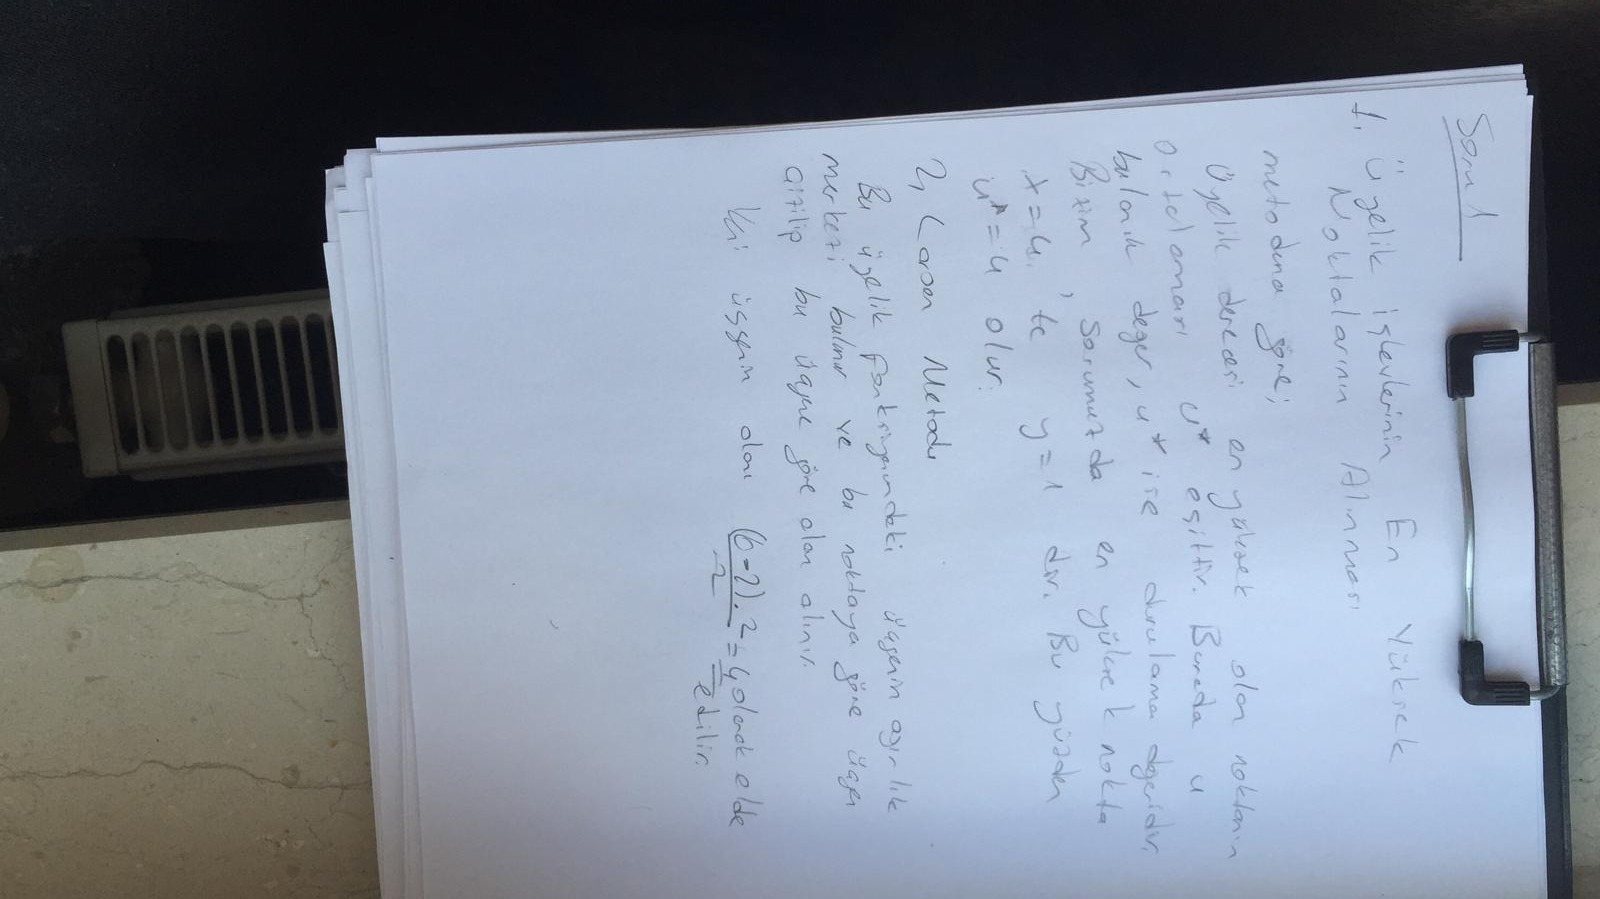 Soru 1
1. Üyelik işlevlerinin En Yüksek
Noktalarının Alınması
metoduna göre;
Üyelik derecesi en yüksek olan noktanın
ortalaması u* eşittir. Burada u
bulanık değer, u* ise durulama değeridir.
Bizim, sorumuzda en yüksek nokta
x=4 te y=1 dir. Bu yüzden
u*=4 olur.
2, Larsen Metodu
Bu üyelik fonksiyonundaki üçgenin ağırlık
merkezi bulunur ve bu noktaya göre üçgen
çizilip bu üçgene göre alan alınır.
İki üçgenin alanı (6-2).2/2=4 olarak elde
edilir.